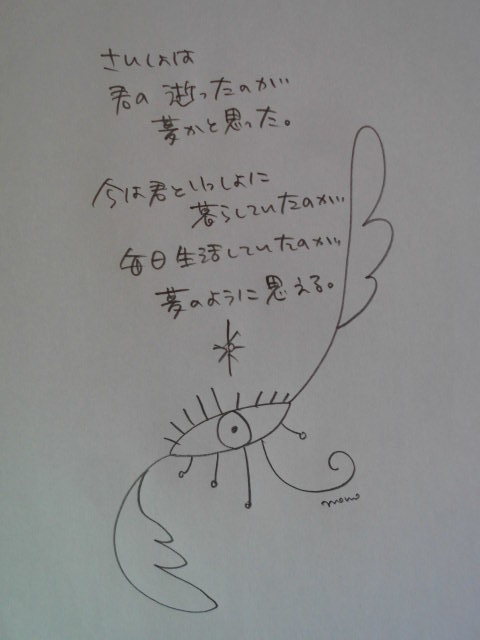 さいしょは
君の逝ったのが
夢かと思った。
今は君といっしょに
暮らしていたのが
毎日生活していたのが
夢のように思える。
momo